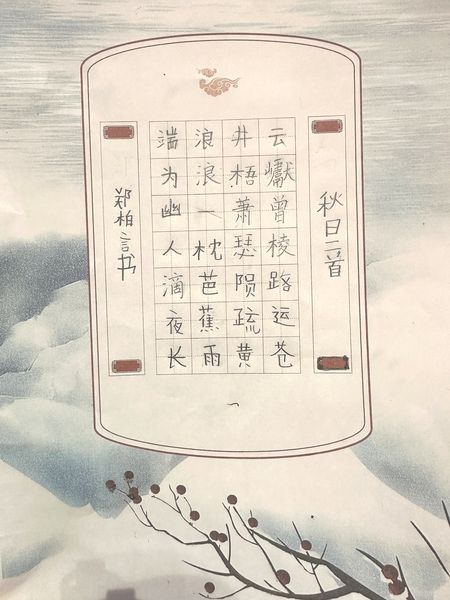 秋日二首
云巘曾棱路运苍
井梧萧瑟陨疏黄
浪浪一枕芭蕉雨
端为幽人滴夜长
郑柏言书